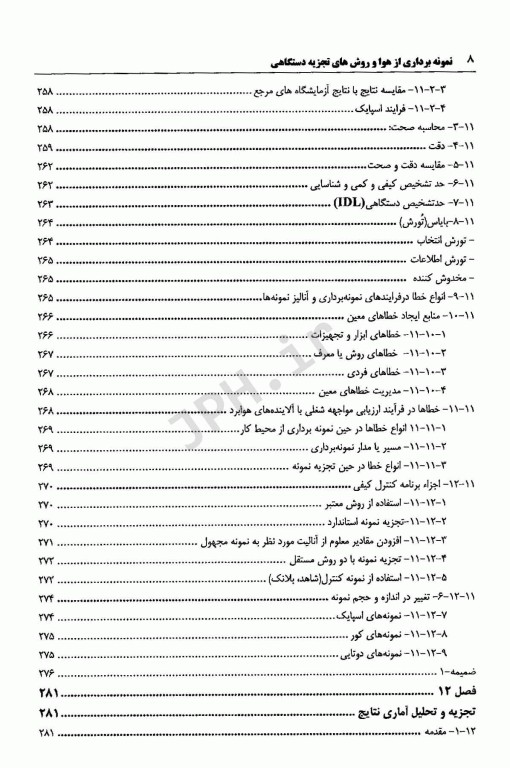 ۸ نمونه برداری از هوا و روش های تجزیه دستگاهی
۱۱-۲-۳- مقایسه نتایج با نتایج آزمایشگاه های مرجع ۲۵۸
۱۱-۲-۴- فرایند اسپایک ۲۵۸
۱۱-۳- محاسبه صحت: ۲۵۸
۱۱-۴- دقت ۲۵۹
۱۱-۵- مقایسه دقت و صحت ۲۶۲
۱۱-۶- حد تشخیص کیفی و کمی و شناسایی ۲۶۲
۱۱-۷- حدتشخیص دستگاهی(IDL) ۲۶۳
۱۱-۸-بایاس(تُورش) ۲۶۴
- تورش انتخاب ۲۶۴
- تورش اطلاعات ۲۶۵
- مخدوش کننده ۲۶۵
۱۱-۹- انواع خطا درفرایندهای نمونه‌برداری و آنالیز نمونه‌ها ۲۶۵
۱۱-۱۰- منابع ایجاد خطاهای معین ۲۶۶
۱۱-۱۰-۱- خطاهای ابزار و تجهیزات ۲۶۶
۱۱-۱۰-۲- خطاهای روش یا معرف ۲۶۷
۱۱-۱۰-۳- خطاهای فردی ۲۶۷
۱۱-۱۰-۴- مدیریت خطاهای معین ۲۶۸
۱۱-۱۱- خطاها در فرآیند ارزیابی مواجهه شغلی با آلاینده‌های هوابرد ۲۶۸
۱۱-۱۱-۱ انواع خطاها در حین نمونه برداری از محیط کار ۲۶۹
۱۱-۱۱-۲- مسیر یا مدار نمونه‌برداری ۲۶۹
۱۱-۱۱-۳- انواع خطا در حین تجزیه نمونه ۲۶۹
۱۱-۱۲- اجزاء برنامه کنترل کیفی ۲۷۰
۱۱-۱۲-۱- استفاده از روش معتبر ۲۷۰
۱۱-۱۲-۲-تجزیه نمونه استاندارد ۲۷۰
۱۱-۱۲-۳- افزودن مقادیر معلوم از آنالیت مورد نظر به نمونه مجهول ۲۷۱
۱۱-۱۲-۴- تجزیه نمونه با دو روش مستقل ۲۷۲
۱۱-۱۲-۵- استفاده از نمونه کنترل(شاهد، بلانک) ۲۷۲
۱۱-۱۲-۶- تغییر در اندازه و حجم نمونه ۲۷۴
۱۱-۱۲-۷- نمونه‌های اسپایک ۲۷۴
۱۱-۱۲-۸- نمونه‌های کور ۲۷۵
۱۱-۱۲-۹- نمونه‌های دوتایی ۲۷۵
ضمیمه-۱ ۲۷۶
فصل ۱۲ ۲۸۱
تجزیه و تحلیل آماری نتایج ۲۸۱
۱۲-۱- مقدمه ۲۸۱
JPH.ir